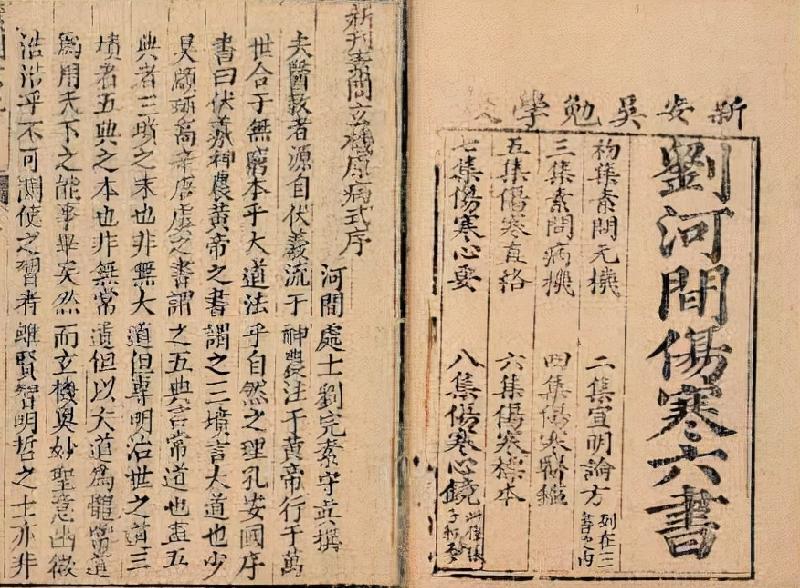 新安吳勉學校
劉河間傷寒六書
初集素問元機 二集宣明論方 列在三書之內
三集素問病機 四集傷寒醫鑑
五集傷寒直格 六集傷寒標本
七集傷寒心要 八集傷寒心鏡
新刊素問玄機原病式序
河間處士劉完素守真撰
夫醫教者源自伏羲流于神農注于黃帝行于萬
世合于無窮本乎大道法乎自然之理孔安國序
書曰伏羲神農黃帝之書謂之三墳言大道也少
昊顓頊高辛唐虞之書謂之五典言常道也蓋五
典者三墳之末也非無大道但專明治世之道三
墳者五典之本也非無常道但以大道為體常道
為用天下之能事畢矣然而玄機奧妙聖意幽微
浩浩乎不可測使之習者雖賢智明哲之士亦非